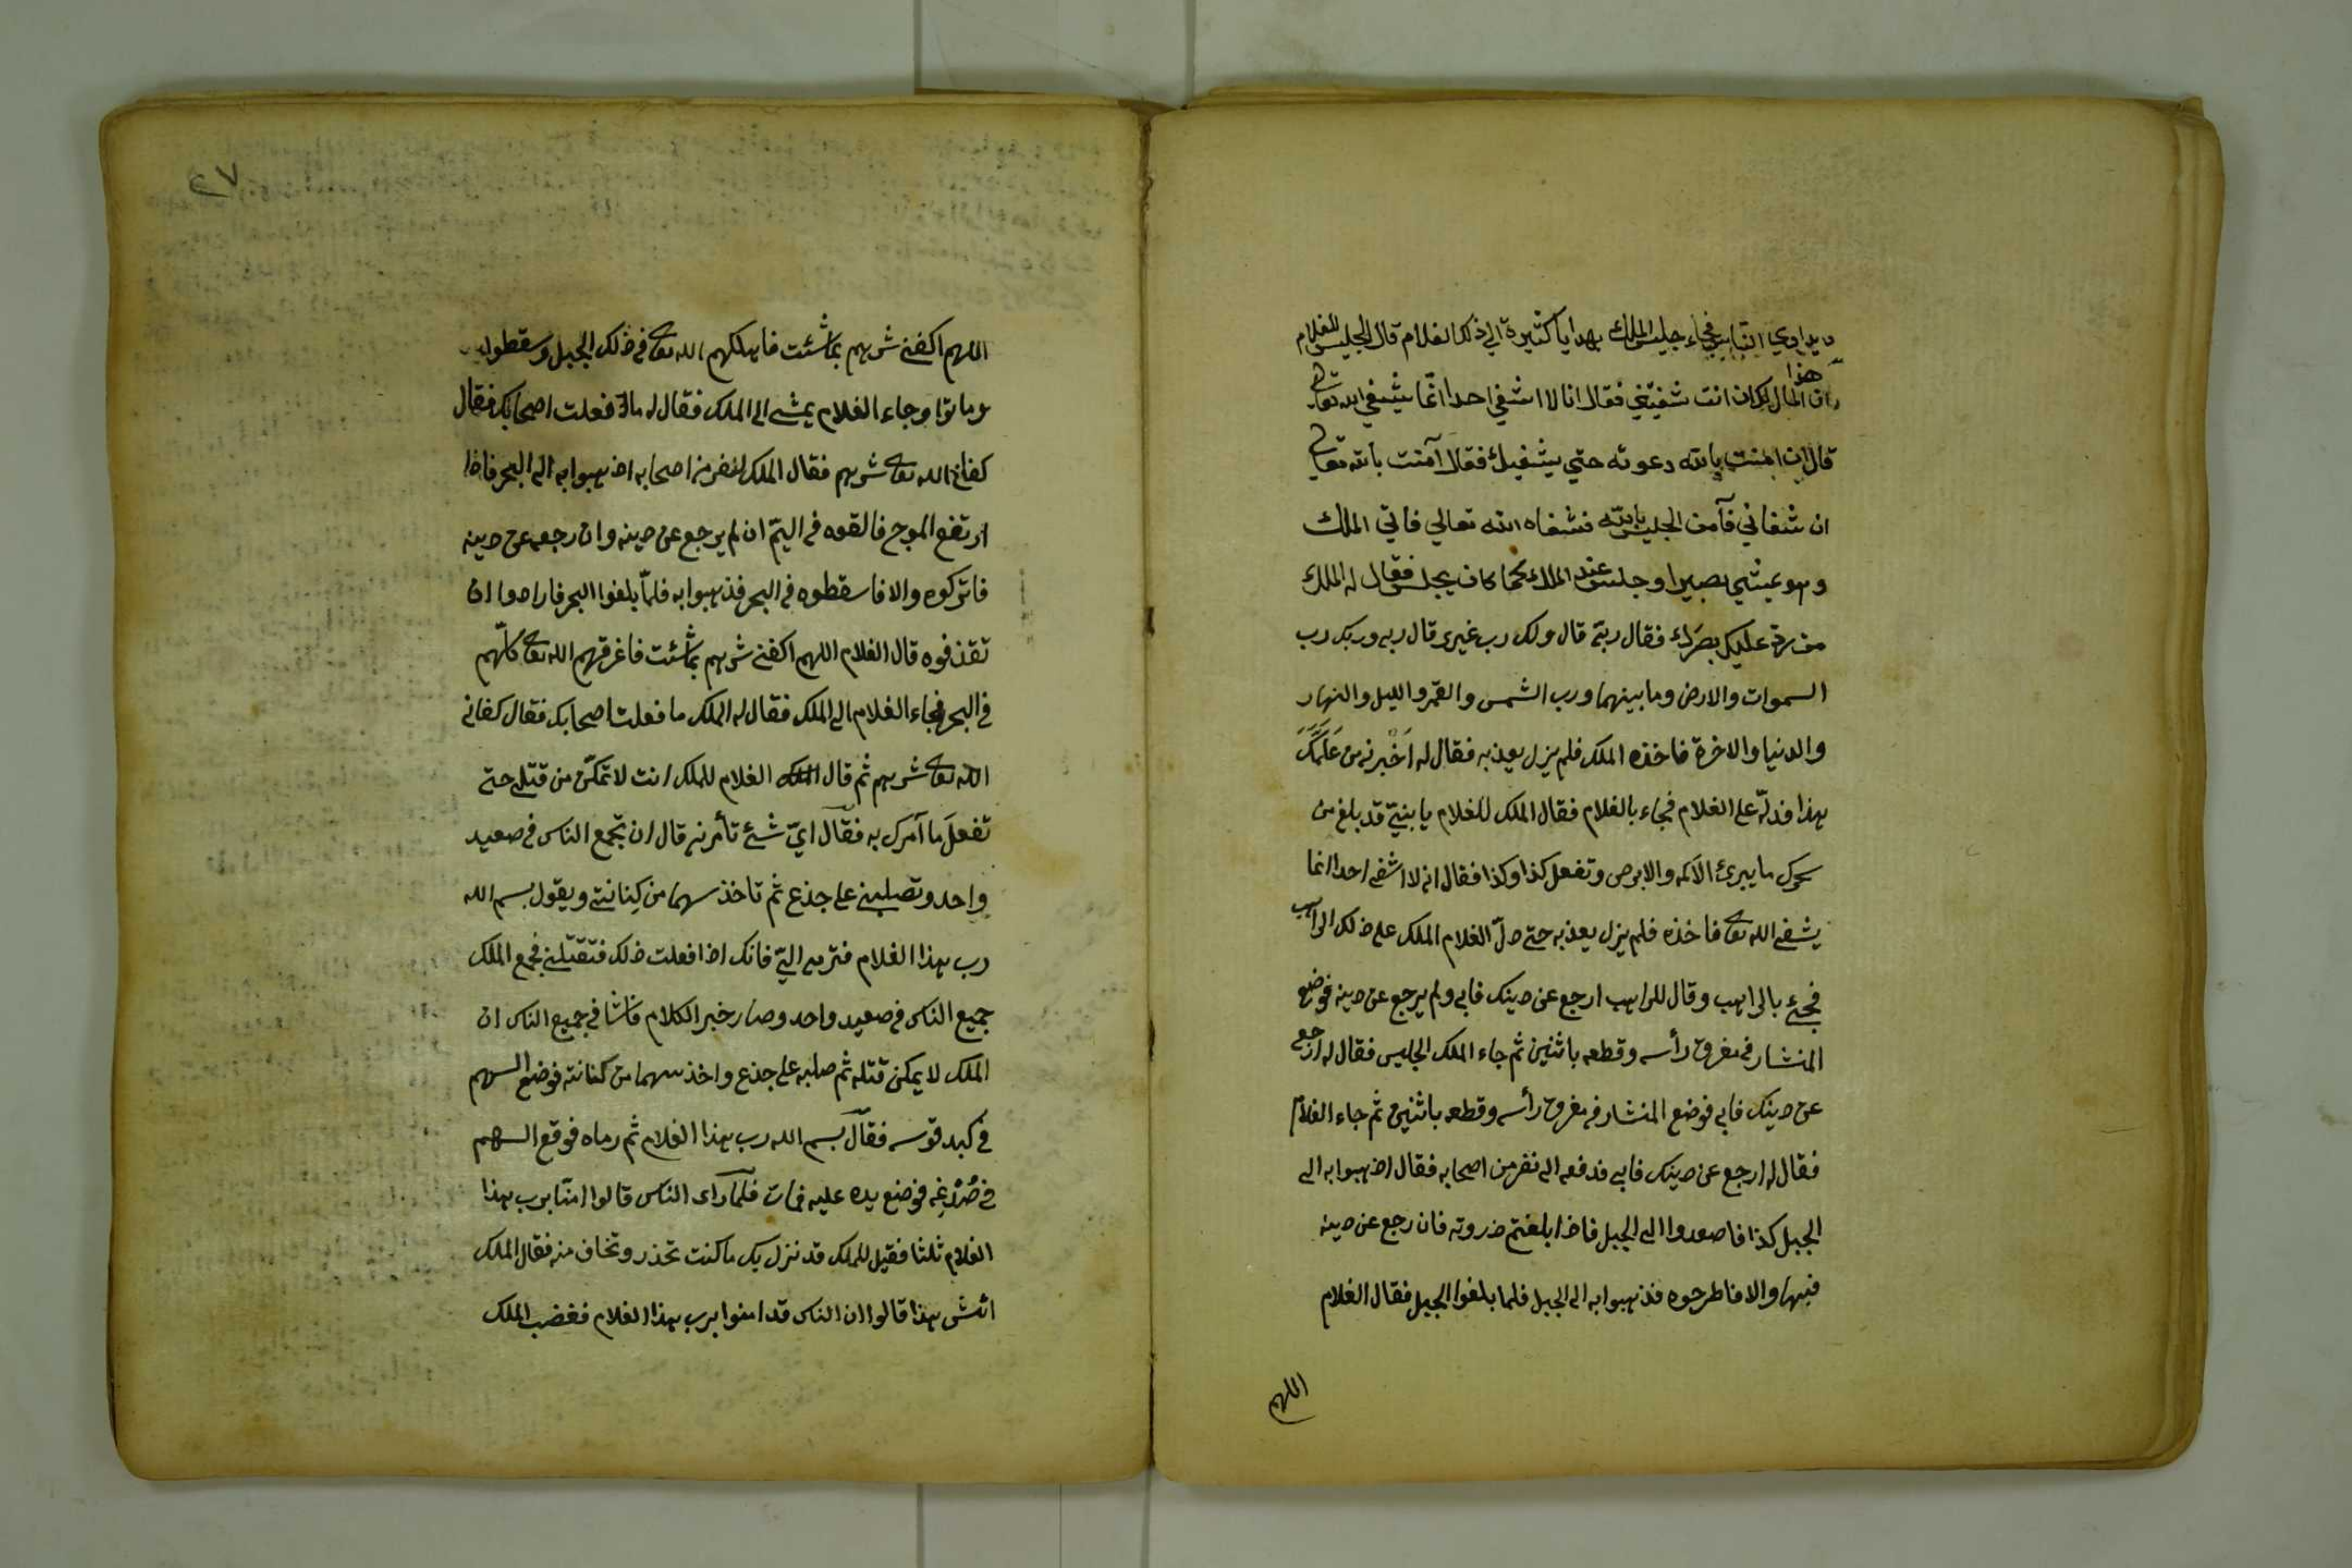 ويداوي الناس فجاء جليس الملك بهدايا كثيرة الي ذلك الغلام قال الجليس للغلام
ان هذا المال لك ان انت شفيتني فقال انا لا اشفي احدا انّما يشفي الله تعالى
قال ان امنت بالله دعوته حتي يشفيك فقال آمنت بالله تعالى
ان شفاني فآمن الجليس بالله فشفاه الله تعالي فاتي الملك
وهو يمشي بصيرا وجلس عند الملك كما كان يجلس فقال له الملك
من ردّ عليك بصرك فقال ربي قال ولك رب غيري قال ربي وربك رب
السموات والارض وما بينهما ورب الشمس والقمر والليل والنهار
والدنيا والاخرة فاخذه الملك فلم يزل يعذبه فقال له اَخْبرني من عَلَّمَكَ
بهذا فدلّه على الغلام فجاء بالغلام فقال الملك للغلام يا بنيّ قد بلغ من
سحرك ما يبرئ الاكمه والابرص وتفعل كذا وكذا فقال اني لا اشفي احدا انما
يشفي الله تعالى فاخذه فلم يزل يعذبه حتى دلّ الغلام الملك على ذلك الراهب
فجئ بالراهب وقال للراهب ارجع عن دينك فابى ولم يرجع عن دينه فوضع
المنشار في مفرق رأسه وقطعه باثنين ثم جاء الملك الجليس فقال له ارجع
عن دينك فابى فوضع المنشار في مفرق رأسه وقطعه باثنين ثم جاء الغلام
فقال له ارجع عن دينك فابى فدفعه الى نفر من اصحابه فقال اذهبوا به الى
الجبل كذا فاصعدوا الى الجبل فاذا بلغتم ذروته فان رجع عن دينه
فبها والا فاطرحوه فذهبوا به الى الجبل فلما بلغوا الجبل فقال الغلام
اللهم
٢٧
اللهم اكفني شرهم بما شئت فاهلكهم الله تعالى في ذلك الجبل وسقطوا
وماتوا وجاء الغلام يمشي الى الملك فقال له ماذا فعلت اصحابك فقال
كفاني الله تعالى شرهم فقال الملك لنفر من اصحابه اذهبوا به الى البحر فاذا
ارتفع الموج فالقوه في اليمّ ان لم يرجع عن دينه وان رجع عن دينه
فاتركوه والا فاسقطوه في البحر فذهبوا به فلمّا بلغوا البحر فارادوا ان
تقذفوه قال الغلام اللهم اكفني شرهم بما شئت فاغرقهم الله تعالى كلّهم
في البحر فجاء الغلام الى الملك فقال له الملك ما فعلت اصحابك فقال كفاني
الله تعالى شرهم ثم قال الغلام للملك انت لا تمكّن من قتلي حتى
تفعل ما آمرك به فقال ايّ شئ تأمرني قال ان تجمع الناس في صعيد
واحد وتصلبني على جذع ثم تاخذ سهما من كِنانتي ويقول بسم الله
رب هذا الغلام فترمي اليّ فانك اذا فعلت ذلك فتقتلني فجمع الملك
جميع الناس في صعيد واحد وصار خبر الكلام فاشا في جميع الناس ان
الملك لا يمكن قتله ثم صلبه على جذع واخذ سهما من كنانته فوضع السهم
في كبد قوسه فقال بسم الله رب هذا الغلام ثم رماه فوقع السهم
في صُدْغِه فوضع يده عليه فمات فلما رأى الناس قالوا امنّا برب هذا
الغلام ثلثا فقيل للملك قد نزل بك ما كنت تحذر وتخاف منه فقال الملك
ائش هذا قالوا ان الناس قد امنوا برب هذا الغلام فغضب الملك